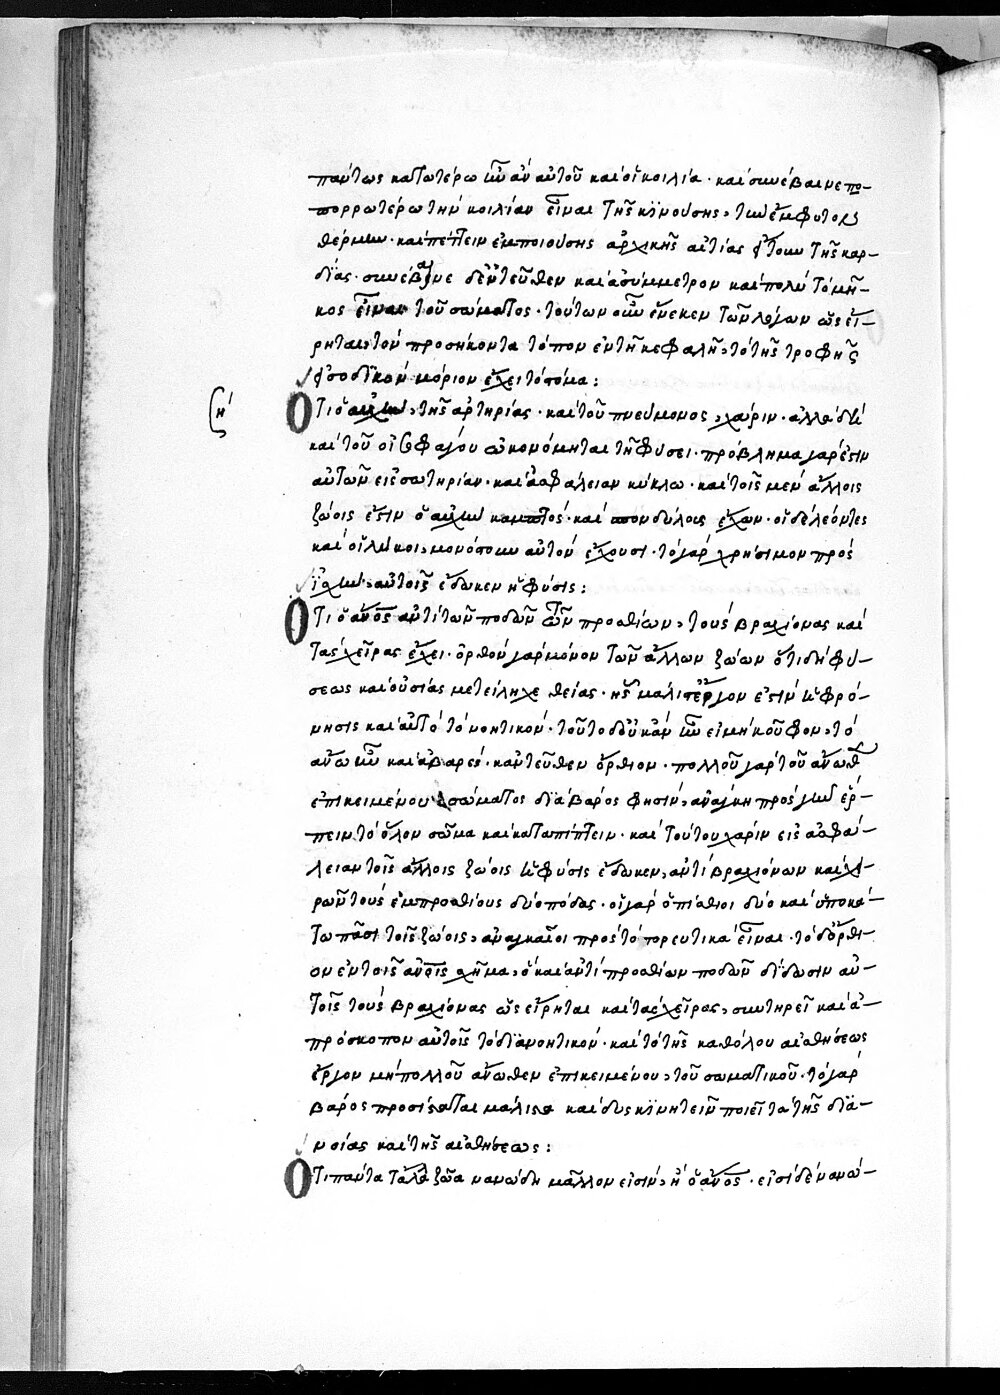 πάντως κατωτέρω ἦν ἂν αὐτοῦ καὶ ἡ κοιλία· καὶ συνέβαινε πο-
πορρωτέρω τὴν κοιλίαν εἶναι τῆς κινούσης, τῶν ἐμφύτων
θέρμων· καὶ πέττειν ἐμποιούσης ἀρχικῆς αἰτίας ἤτουν τῆς καρ-
δίας· συνέβαινε δ' ἐντεῦθεν καὶ ἀσύμμετρον καὶ πολὺ τὸ μῆ-
κος εἶναι τοῦ σώματος· τούτων οὖν ἕνεκεν τῶν λόγων ὡς εἴ-
ρηται, τὸν προσήκοντα τόπον ἐν τῇ κεφαλῇ, τὸ τῆς τροφῆς
εἰσοδικὸν μόριον ἔχει τὸ στόμα:
η'
Ὅτι ὁ αὐχὴν, τῆς ἀρτηρίας· καὶ τοῦ πνεύμονος, χάριν· ἀλλὰ δὴ
καὶ τοῦ οἰσοφάγου ᾠκονόμηται τῇ φύσει· πρόβλημα γάρ ἐστιν
αὐτῶν εἰς σωτηρίαν· καὶ ἀσφάλειαν κύκλω· καὶ τοῖς μὲν ἄλλοις
ζώοις ἐστὶν ὁ αὐχὴν καμπτός· καὶ σπονδύλους ἔχων· οἱ δὲ λέοντες
καὶ οἱ λύκοι, μονόστουν αὐτὸν ἔχουσι· τὸ γὰρ χρήσιμον πρὸς
ἰσχὺν, αὐτοῖς ἔδωκεν ἡ φύσις:
Ὅτι ὁ ἄνος ἀντὶ τῶν ποδῶν τῶν προσθίων, τοὺς βραχίονας καὶ
τὰς χεῖρας ἔχει· ὀρθὸν γὰρ μόνον τῶν ἄλλων ζώων ὅτι δὴ φύ-
σεως καὶ οὐσίας μετείληχε θείας· ἧς μάλιστ' ἔργον ἐστὶν ἡ φρό-
νησις καὶ αὐτὸ τὸ νοητικόν· τοῦτο δ' οὐκ ἂν ἦν εἰ μὴ κοῦφον, τὸ
ἄνω ἦν καὶ ἀβαρές· κἀντεῦθεν ὄρθιον· πολλοῦ γὰρ τοῦ ἄνωθ
ἐπικειμένου σώματος διὰ βάρος φησὶν, ἀνάγκη πρὸς γῆν ἕρ-
πειν τὸ ὅλον σῶμα καὶ καταπίπτειν· καὶ τούτου χάριν εἰς ἀσφά-
λειαν τοῖς ἄλλοις ζώοις ἡ φύσις ἔδωκεν, ἀντὶ βραχιόνων καὶ χει-
ρῶν τοὺς ἐμπροσθίους δύο πόδας· οἱ γὰρ ὀπίσθιοι δύο καὶ ὑποκά-
τω πᾶσι τοῖς ζώοις, ἀναγκαῖοι πρὸς τὸ πορευτικὰ εἶναι· τὸ δ' ὄρθι-
ον ἐν τοῖς ἀνοις σχῆμα, ὃ καὶ ἀντὶ προσθίων ποδῶν δίδωσιν αὐ-
τοῖς τοὺς βραχίονας ὡς εἴρηται καὶ τὰς χεῖρας, συντηρεῖ καὶ ἀ-
πρόσκοπον αὐτοῖς τὸ διανοητικόν· καὶ τὸ τῆς καθόλου αἰσθήσεως
ἔργον μὴ πολλοῦ ἄνωθεν ἐπικειμένου, τοῦ σωματικοῦ· τὸ γὰρ
βάρος προσίσταται μάλιστα καὶ δυσκίνητειν ποιεῖ τὰ τῆς δια-
νοίας καὶ τῆς αἰσθήσεως:
Ὅτι πάντα τἄλλα ζῶα νανώδη μᾶλλον εἰσὶν, ἢ ὁ ἄνος· εἰσὶ δὲ νανώ-